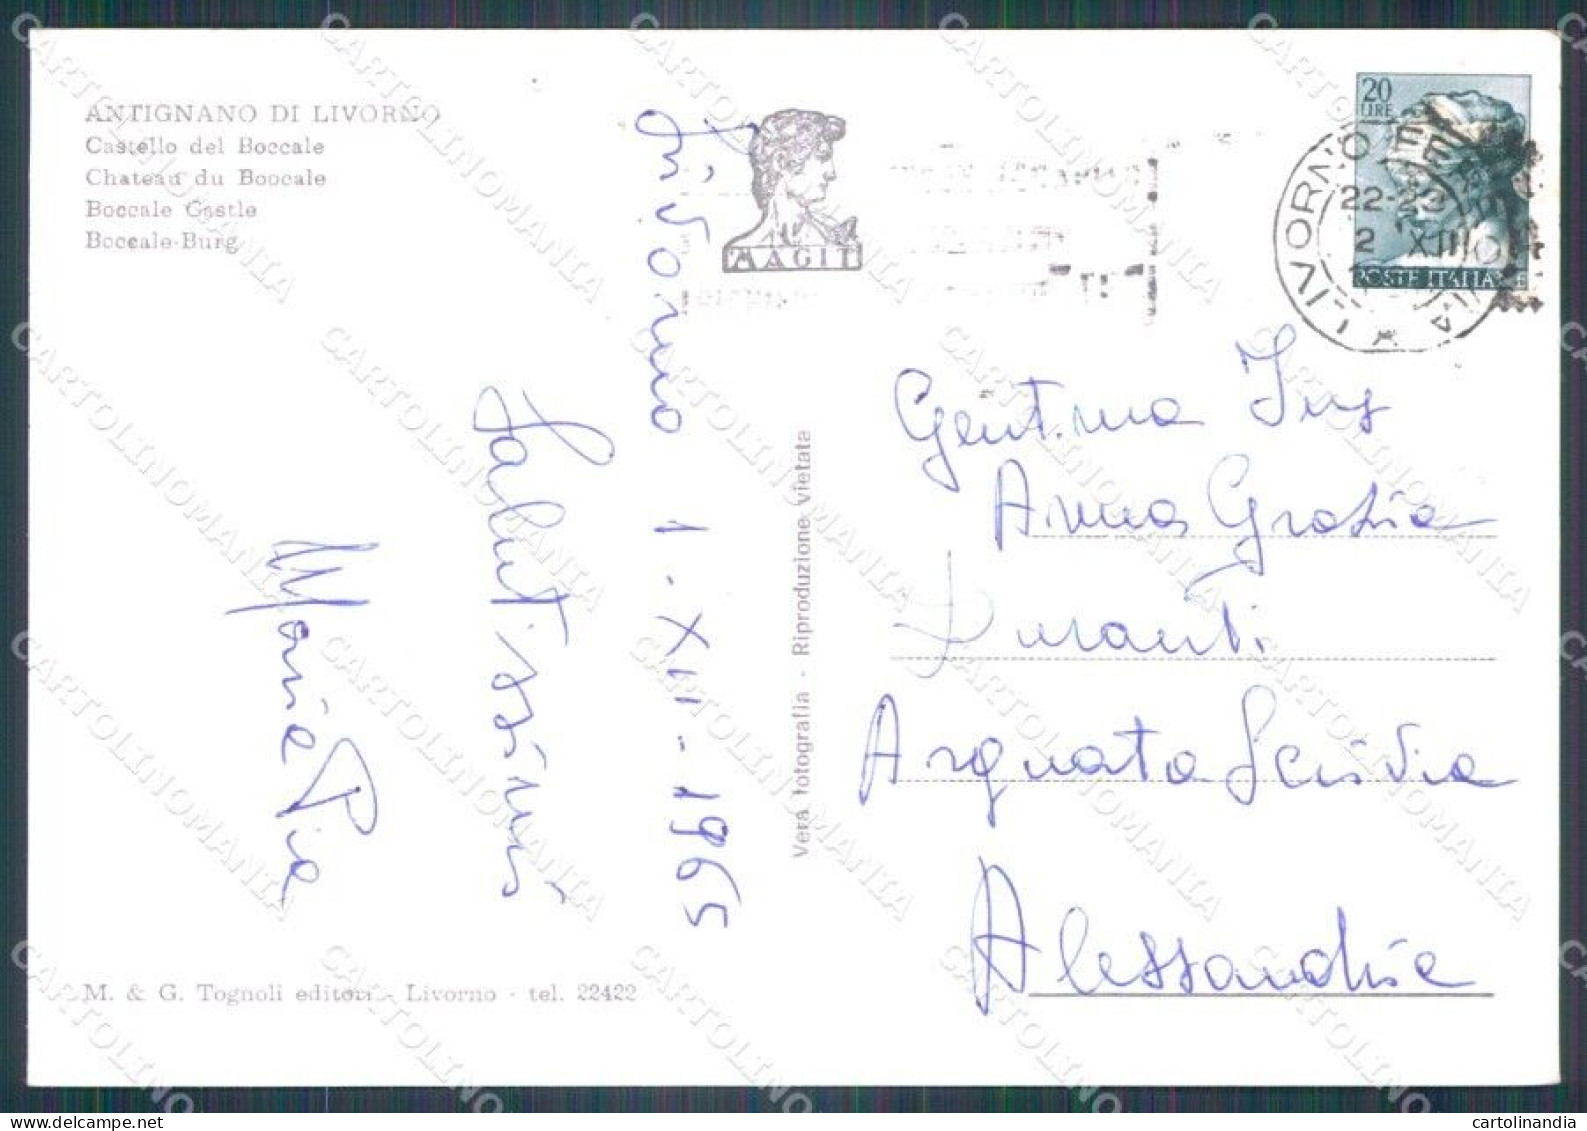 ANTIGNANO DI LIVORNO
Castello del Boccale
Chateau du Boccale
Boccale Castle
Boccale-Burg
Livorno 1-XII-1965
Salutissimi
Maria Pia
M. & G. Tognoli editori - Livorno - tel. 22422
Vera fotografia - Riproduzione vietata
MAGIT
20
LIRE
POSTE ITALIANE
LIVORNO
22-23
2 XII
Gent.ma
Anna Grazia
Duranti
Arquata Scrivia
Alessandria
CARTOLINOMANIA
cartolinandia